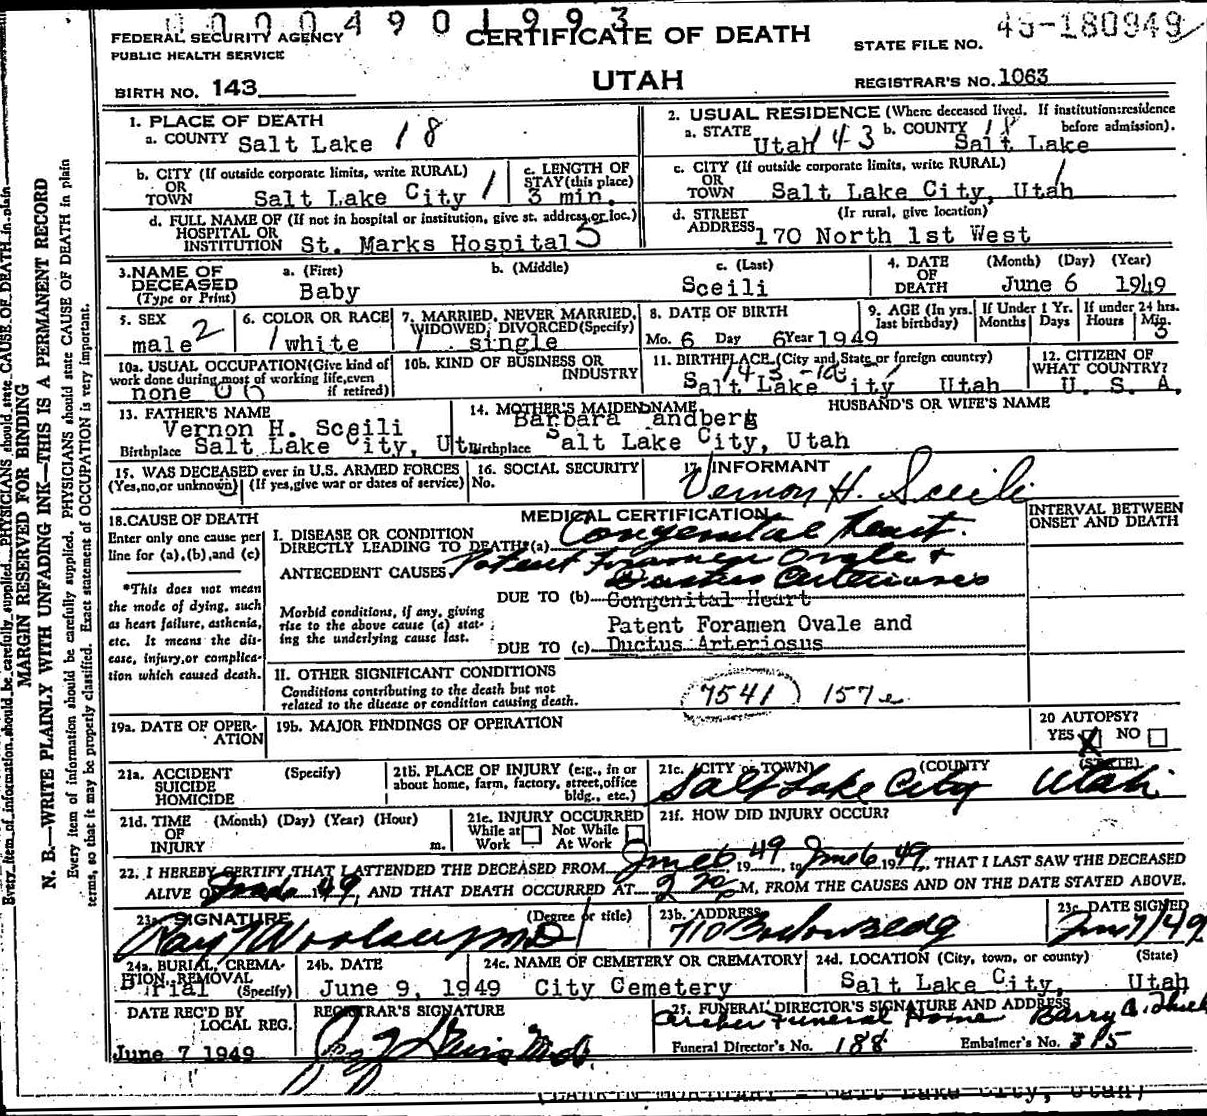 00004901993
FEDERAL SECURITY AGENCY CERTIFICATE OF DEATH STATE FILE NO. 49-180949
PUBLIC HEALTH SERVICE
BIRTH NO. 143 UTAH REGISTRAR'S NO. 1063
1. PLACE OF DEATH 2. USUAL RESIDENCE (Where deceased lived. If institution:residence before admission).
a. COUNTY Salt Lake 18 a. STATE Utah 143 b. COUNTY 18 Salt Lake
b. CITY (If outside corporate limits, write RURAL) OR TOWN Salt Lake City 1 c. LENGTH OF STAY (this place) 3 min. c. CITY (If outside corporate limits, write RURAL) OR TOWN Salt Lake City, Utah 1
d. FULL NAME OF (If not in hospital or institution, give st. address or loc.) HOSPITAL OR INSTITUTION St. Marks Hospital 5 d. STREET ADDRESS (If rural, give location) 170 North 1st West
3. NAME OF DECEASED (Type or Print) a. (First) Baby b. (Middle) c. (Last) Sceili 4. DATE OF DEATH (Month) (Day) (Year) June 6 1949
5. SEX male 2 6. COLOR OR RACE 1 white 7. MARRIED, NEVER MARRIED, WIDOWED, DIVORCED (Specify) 1 single 8. DATE OF BIRTH Mo. 6 Day 6 Year 1949 9. AGE (In yrs. last birthday) If Under 1 Yr. Months Days If under 24 hrs. Hours Min. 3
10a. USUAL OCCUPATION (Give kind of work done during most of working life, even if retired) none 10b. KIND OF BUSINESS OR INDUSTRY 11. BIRTHPLACE (City and State or foreign country) Salt Lake City Utah 12. CITIZEN OF WHAT COUNTRY? U. S. A.
13. FATHER'S NAME Vernon H. Sceili 14. MOTHER'S MAIDEN NAME Barbara andberg HUSBAND'S OR WIFE'S NAME
Birthplace Salt Lake City, Ut. Birthplace Salt Lake City, Utah
15. WAS DECEASED ever in U.S. ARMED FORCES 16. SOCIAL SECURITY 17. INFORMANT
(Yes, no, or unknown) (If yes, give war or dates of service) No. Vernon H. Sceili
18. CAUSE OF DEATH MEDICAL CERTIFICATION INTERVAL BETWEEN ONSET AND DEATH
Enter only one cause per line for (a), (b), and (c)
I. DISEASE OR CONDITION DIRECTLY LEADING TO DEATH* (a) Congenital heart.
ANTECEDENT CAUSES Patent Foramen Ovale + Ductus Arteriosus
*This does not mean the mode of dying, such as heart failure, asthenia, etc. It means the disease, injury, or complication which caused death.
DUE TO (b) Congenital Heart
Morbid conditions, if any, giving rise to the above cause (a) stating the underlying cause last.
Patent Foramen Ovale and
DUE TO (c) Ductus Arteriosus
II. OTHER SIGNIFICANT CONDITIONS
Conditions contributing to the death but not related to the disease or condition causing death. 7541 157e
19a. DATE OF OPERATION 19b. MAJOR FINDINGS OF OPERATION 20 AUTOPSY? YES X NO
21a. ACCIDENT SUICIDE HOMICIDE (Specify) 21b. PLACE OF INJURY (e.g., in or about home, farm, factory, street, office bldg., etc.) 21c. (CITY or TOWN) (COUNTY (STATE) Salt Lake City Utah
21d. TIME OF INJURY (Month) (Day) (Year) (Hour) m. 21e. INJURY OCCURRED While at Work Not While At Work 21f. HOW DID INJURY OCCUR?
22. I HEREBY CERTIFY THAT I ATTENDED THE DECEASED FROM June 6 1949, to June 6 1949, THAT I LAST SAW THE DECEASED
ALIVE ON 49, AND THAT DEATH OCCURRED AT 2 M, FROM THE CAUSES AND ON THE DATE STATED ABOVE.
23a. SIGNATURE (Degree or title) 23b. ADDRESS 23c. DATE SIGNED
Ray T Woolsey MD 710 Boston Bldg June 7/49
24a. BURIAL, CREMATION, REMOVAL (Specify) Burial 24b. DATE June 9, 1949 24c. NAME OF CEMETERY OR CREMATORY City Cemetery 24d. LOCATION (City, town, or county) (State) Salt Lake City, Utah
DATE REC'D BY LOCAL REG. June 7 1949 REGISTRAR'S SIGNATURE 25. FUNERAL DIRECTOR'S SIGNATURE AND ADDRESS
Funeral Home Barry
Funeral Director's No. 188 Embalmer's No. 385
MARGIN RESERVED FOR BINDING
N. B.—WRITE PLAINLY WITH UNFADING INK—THIS IS A PERMANENT RECORD
Every item of information should be carefully supplied. PHYSICIANS should state CAUSE OF DEATH in plain
terms, so that it may be properly classified. Exact statement of OCCUPATION is very important.